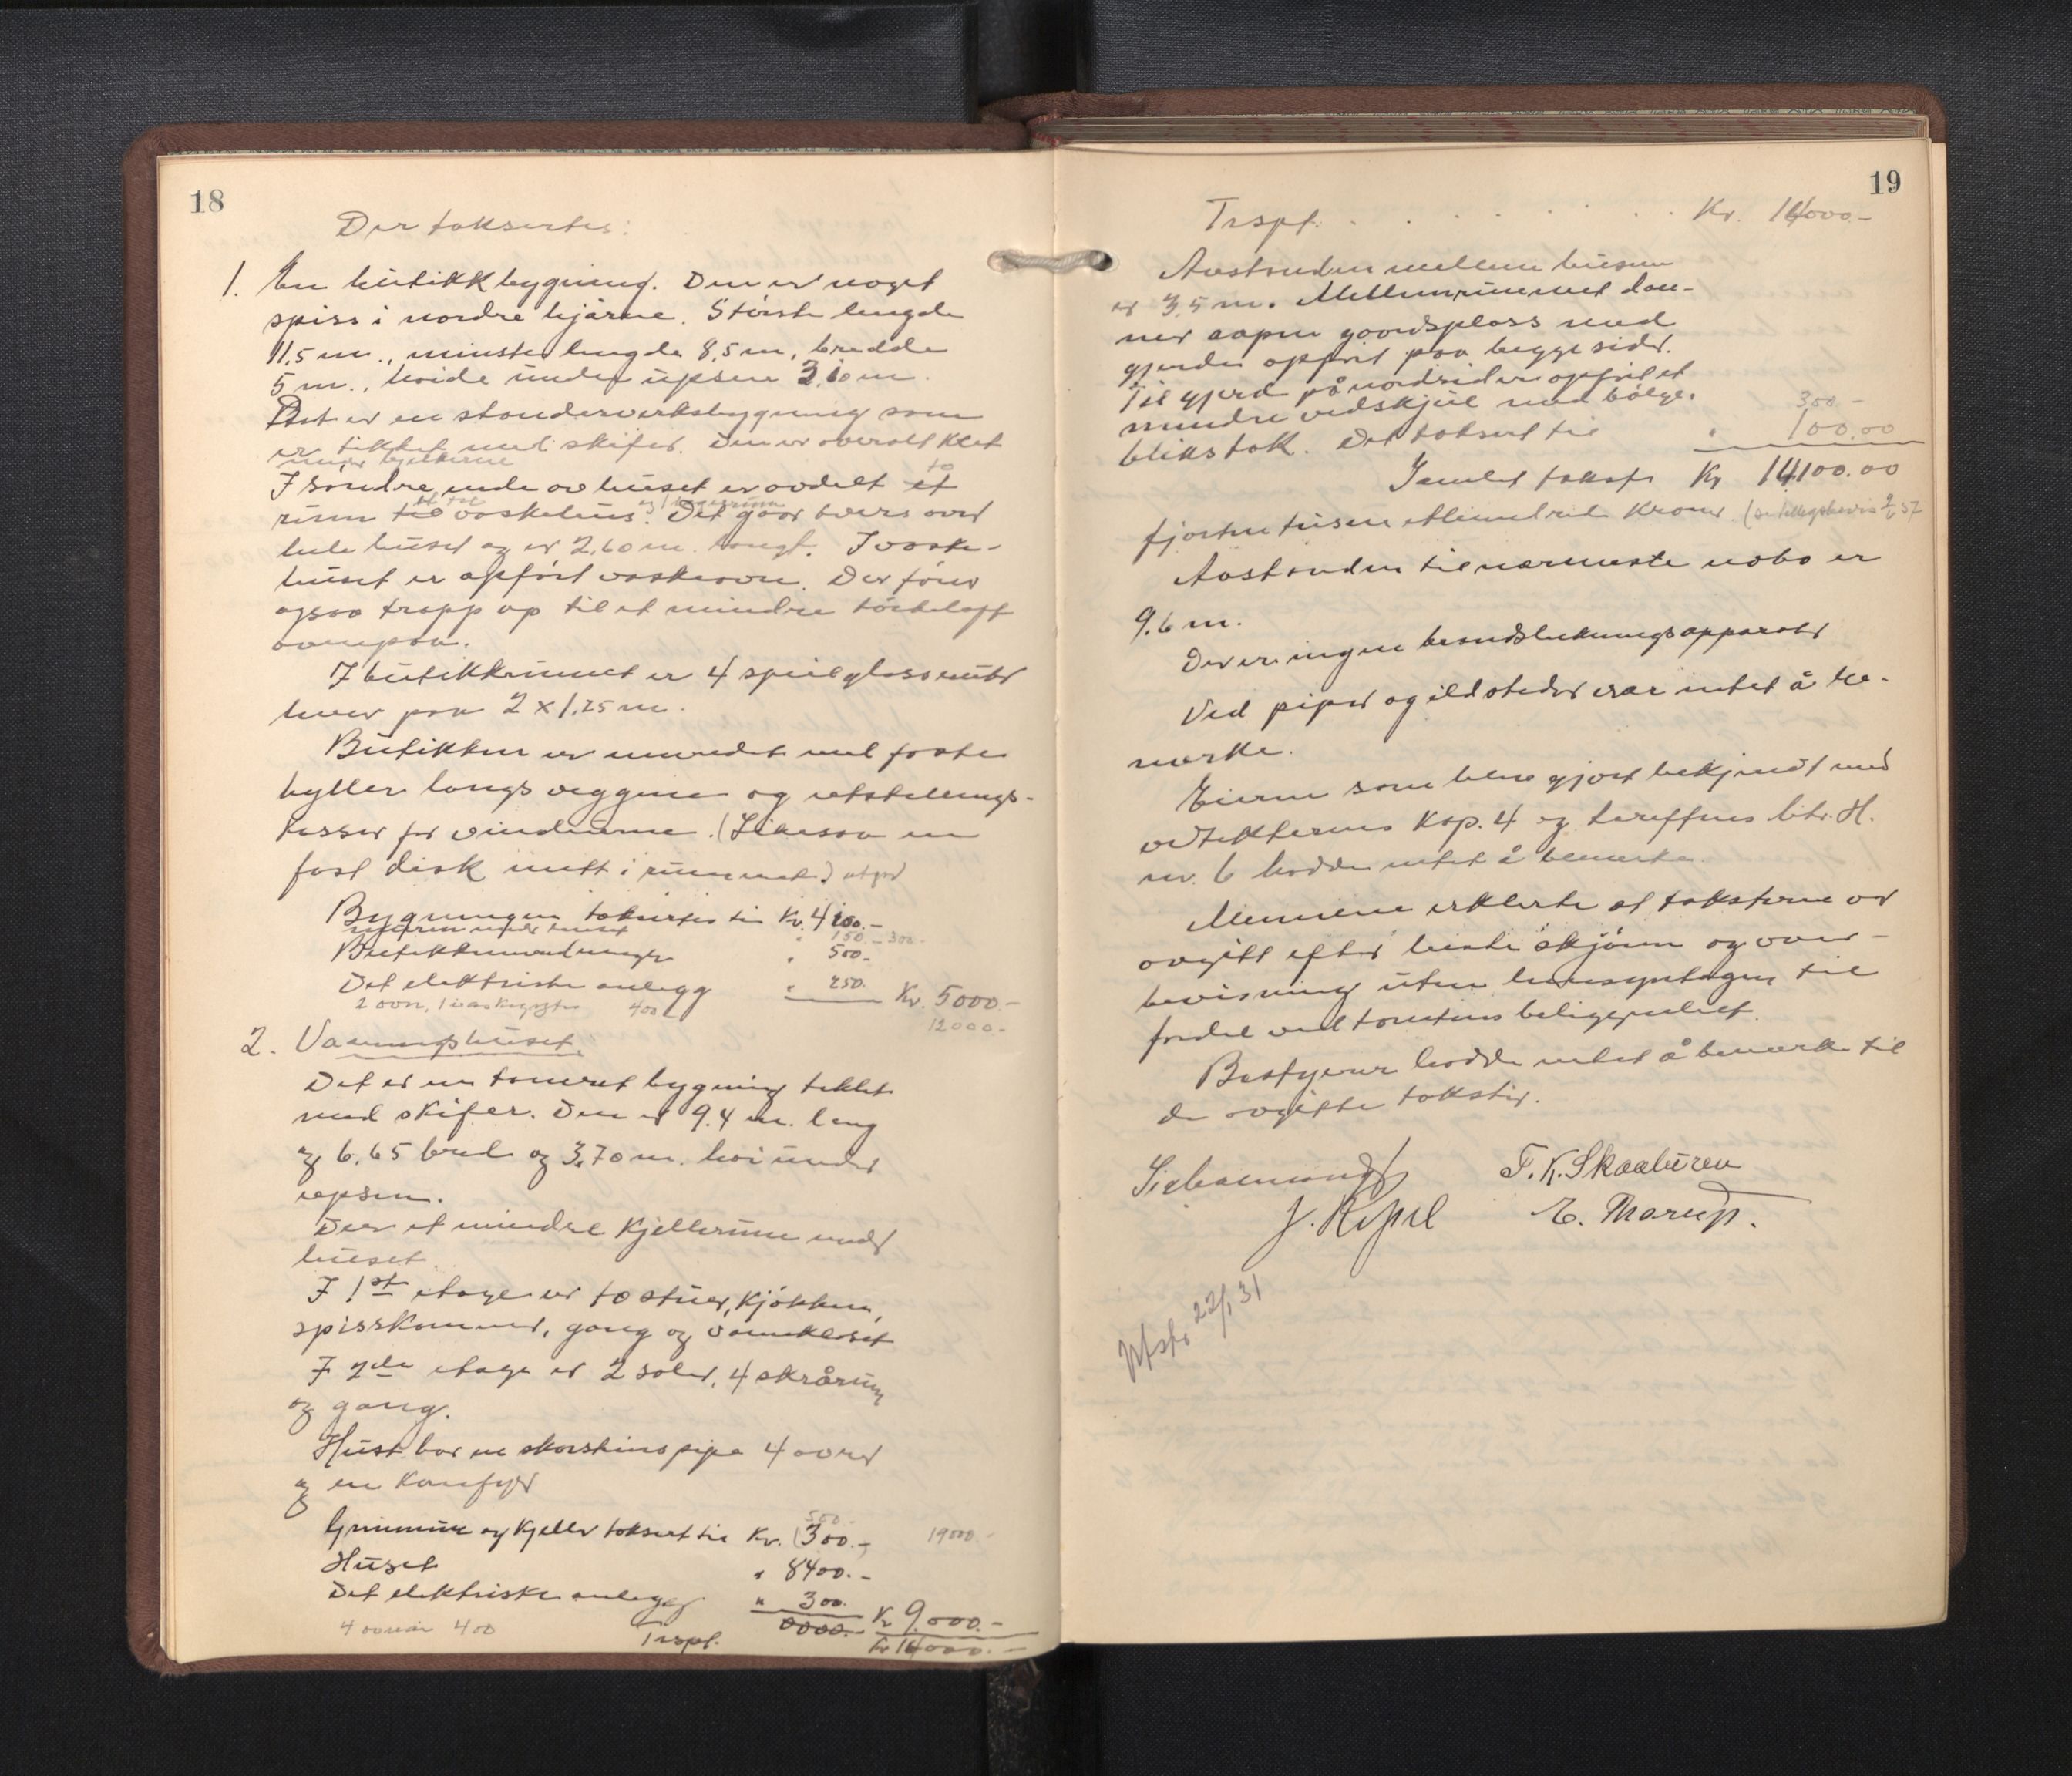 18
Der takseertes:
1. En butikkbygning. Den er noget
spiss i nordre hjørne. Största lengde
11,5 m., minste lengde 8,5 m, bredde
5 m., høide under upsen 3,10 m.
Det er en stenderverksbygning som
er tekket med skifer. Den er overalt klet
under bjelkerne
I søndre ende av huset er avdelt et to
rum til vaskehus. Det gaar tvers over
hele huset og er 2,60 m. langt. I vaske-
huset er opført vaskeovn. Der fører
ogsaa trapp op til et mindre törkeloft
ovenpaa.
I butikkrummet er 4 speilglassruter
hver paa 2 x 1,25 m.
Butikken er innredet med faste
hyller langs veggene og utstillings-
kasser for vinduerne. (Likesaa en
fast disk midt i rummet) utgår
Bygningen takseres til Kr. 4200.-
150 - 300 -
Butikkinnredningen " 500.-
Det elektriske anlegg " 250. Kr. 5000.-
2 ovn, 400 12000.-
2. Vaaningshuset.
Det er en tömret bygning tekket
med skifer. Den er 9.4 m. lang
og 6,65 bred og 3,70 m. høi under
upsen.
Der et mindre kjellerrum under
huset.
I 1st etage er to stuer, kjøkken,
spisskammer, gang og vannkloset
I 2den etage er 2 saler, 4 skrårum
og gang.
Huset har en skorstenspipe 4 ovner
og en komfyr
500.-
Grunnmur og kjeller taksert til Kr. (300.-) 19000.-
Huset " 8400.-
Det elektriske anlegg " 300. Kr 9.000.-
4 ovner 400 Trspt. 0000. Kr 14000.-
19
Trspt. . . . . . . . Kr. 14000.-
Avstanden mellem husene
er 3,5 m. Mellemrummet dan-
ner aapen gaardsplass med
gjerder opført paa begge sider.
Til gjerd på nordsiden opført et
mindre vedskjul med bölge- 300.-
blikstak. Det taksert til " 100.00
Samlet takst Kr 14100.00
fjorten tusen ethundrede kroner (se tilleggsbevis 2/6 37
Avstanden til nærmeste nabo er
9.6 m.
Der er ingen brandslukningsapparater
Ved piper og ildsteder var intet å be-
merke.
Eieren som blev gjort bekjendt med
vedtekternes Kap. 4 og tariffens litr. H.
nr. 6 hadde intet å bemerke.
Mennene erklerte at taksterne er
avgitt efter beste skjönn og over-
bevisning uten hensyntagen til
fordel ved tomtens beliggenhet.
Bestyrer hadde intet å bemerke til
de avgitte takster.
T. K. Skaaluren
E. Marup.
22/1 31